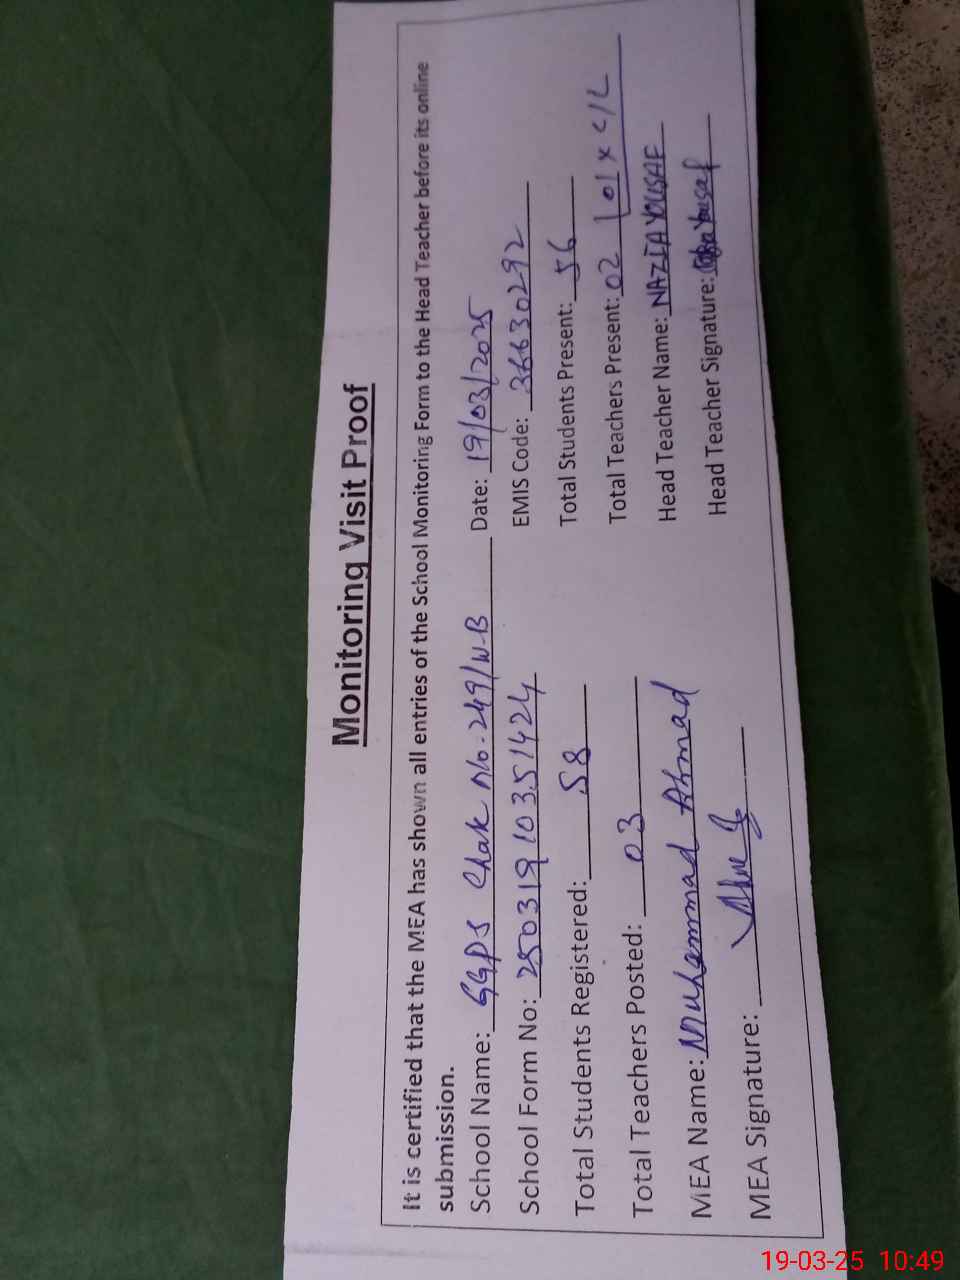 Monitoring Visit Proof
It is certified that the MEA has shown all entries of the School Monitoring Form to the Head Teacher before its online
submission.
School Name: GGPS Chak No. 249/W-B Date: 19/03/2025
School Form No: 25031910351424 EMIS Code: 36630292
Total Students Registered: 58 Total Students Present: 56
Total Teachers Posted: 03 Total Teachers Present: 02 01 x C/L
MEA Name: Muhammad Ahmad Head Teacher Name: NAZIA YOUSAF
MEA Signature: Head Teacher Signature: Yousaf
19-03-25 10:49